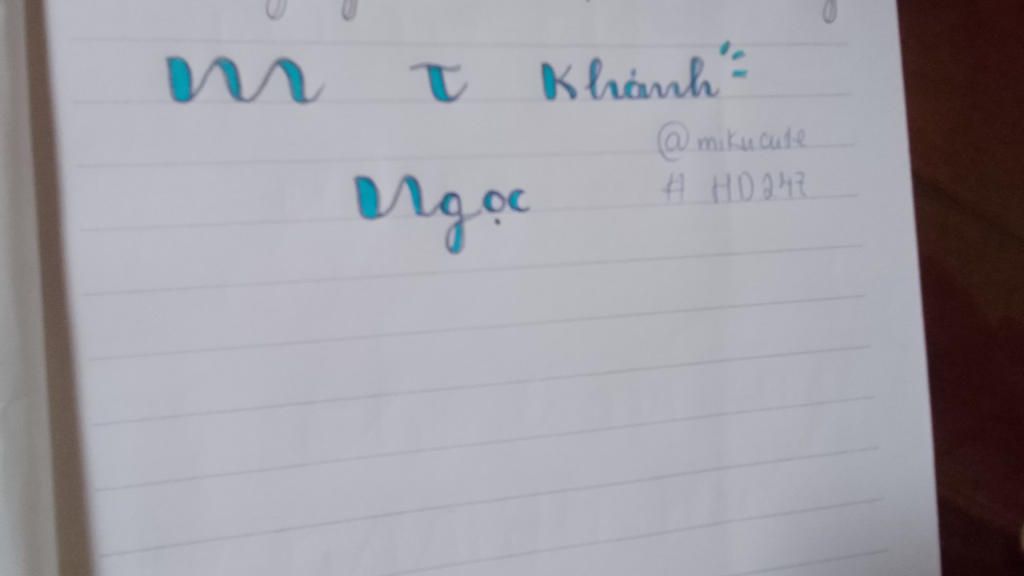 M T Khánh
@mikucute
Ngọc
# HD247